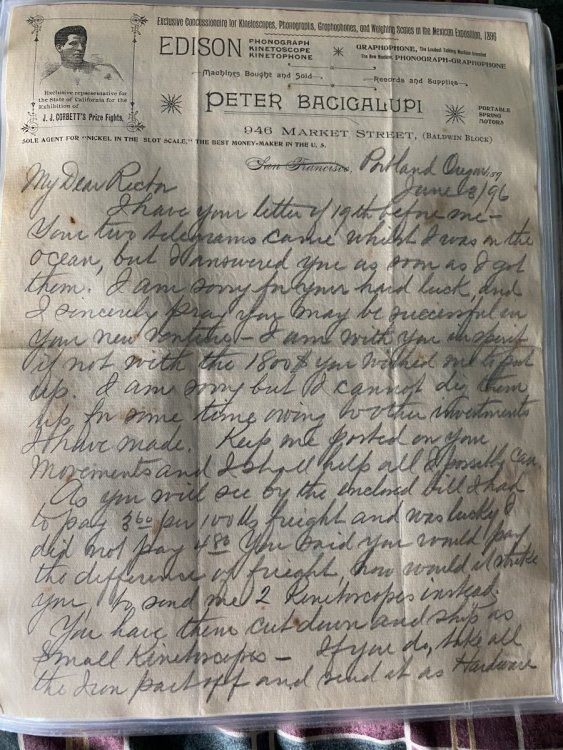 Exclusive Concessionaire for Kinetoscopes, Phonographs, Graphophones, and Weighing Scales at the Mexican Exposition, 1896
EDISON PHONOGRAPH KINETOSCOPE KINETOPHONE
GRAPHOPHONE, The Loudest Talking Machine Invented
The New Machine, PHONOGRAPH-GRAPHOPHONE
Machines Bought and Sold
Records and Supplies
Exclusive representative for
the State of California for the
Exhibition of
J. J. CORBETT'S Prize Fights.
PETER BACIGALUPI
PORTABLE
SPRING
MOTORS
946 MARKET STREET, (BALDWIN BLOCK)
SOLE AGENT FOR "NICKEL IN THE SLOT SCALE," THE BEST MONEY-MAKER IN THE U. S.
San Francisco, Portland Oregon, 189
June 3/96
My Dear Rector
I have your letter of 19th before me -
Your two telegrams came whilst I was on the
ocean, but I answered you as soon as I got
them. I am sorry for your hard luck, and
I sincerely pray you may be successful in
your new venture - I am with you in spirit
if not with the 1800$ you wished me to put
up. I am sorry but I cannot dig them
up for some time owing to other investments
I have made. Keep me posted on your
movements and I shall help all I possibly can
As you will see by the enclosed bill I had
to pay 3 60 per 100 lbs freight and was lucky I
did not pay 4 80 You said you would pay
the difference of freight, how would it strike
you, to send me 2 Kinetoscopes instead.
You have them cut down and ship as
Small Kinetoscopes - If you do, take all
the Iron part off and send it as Hardware